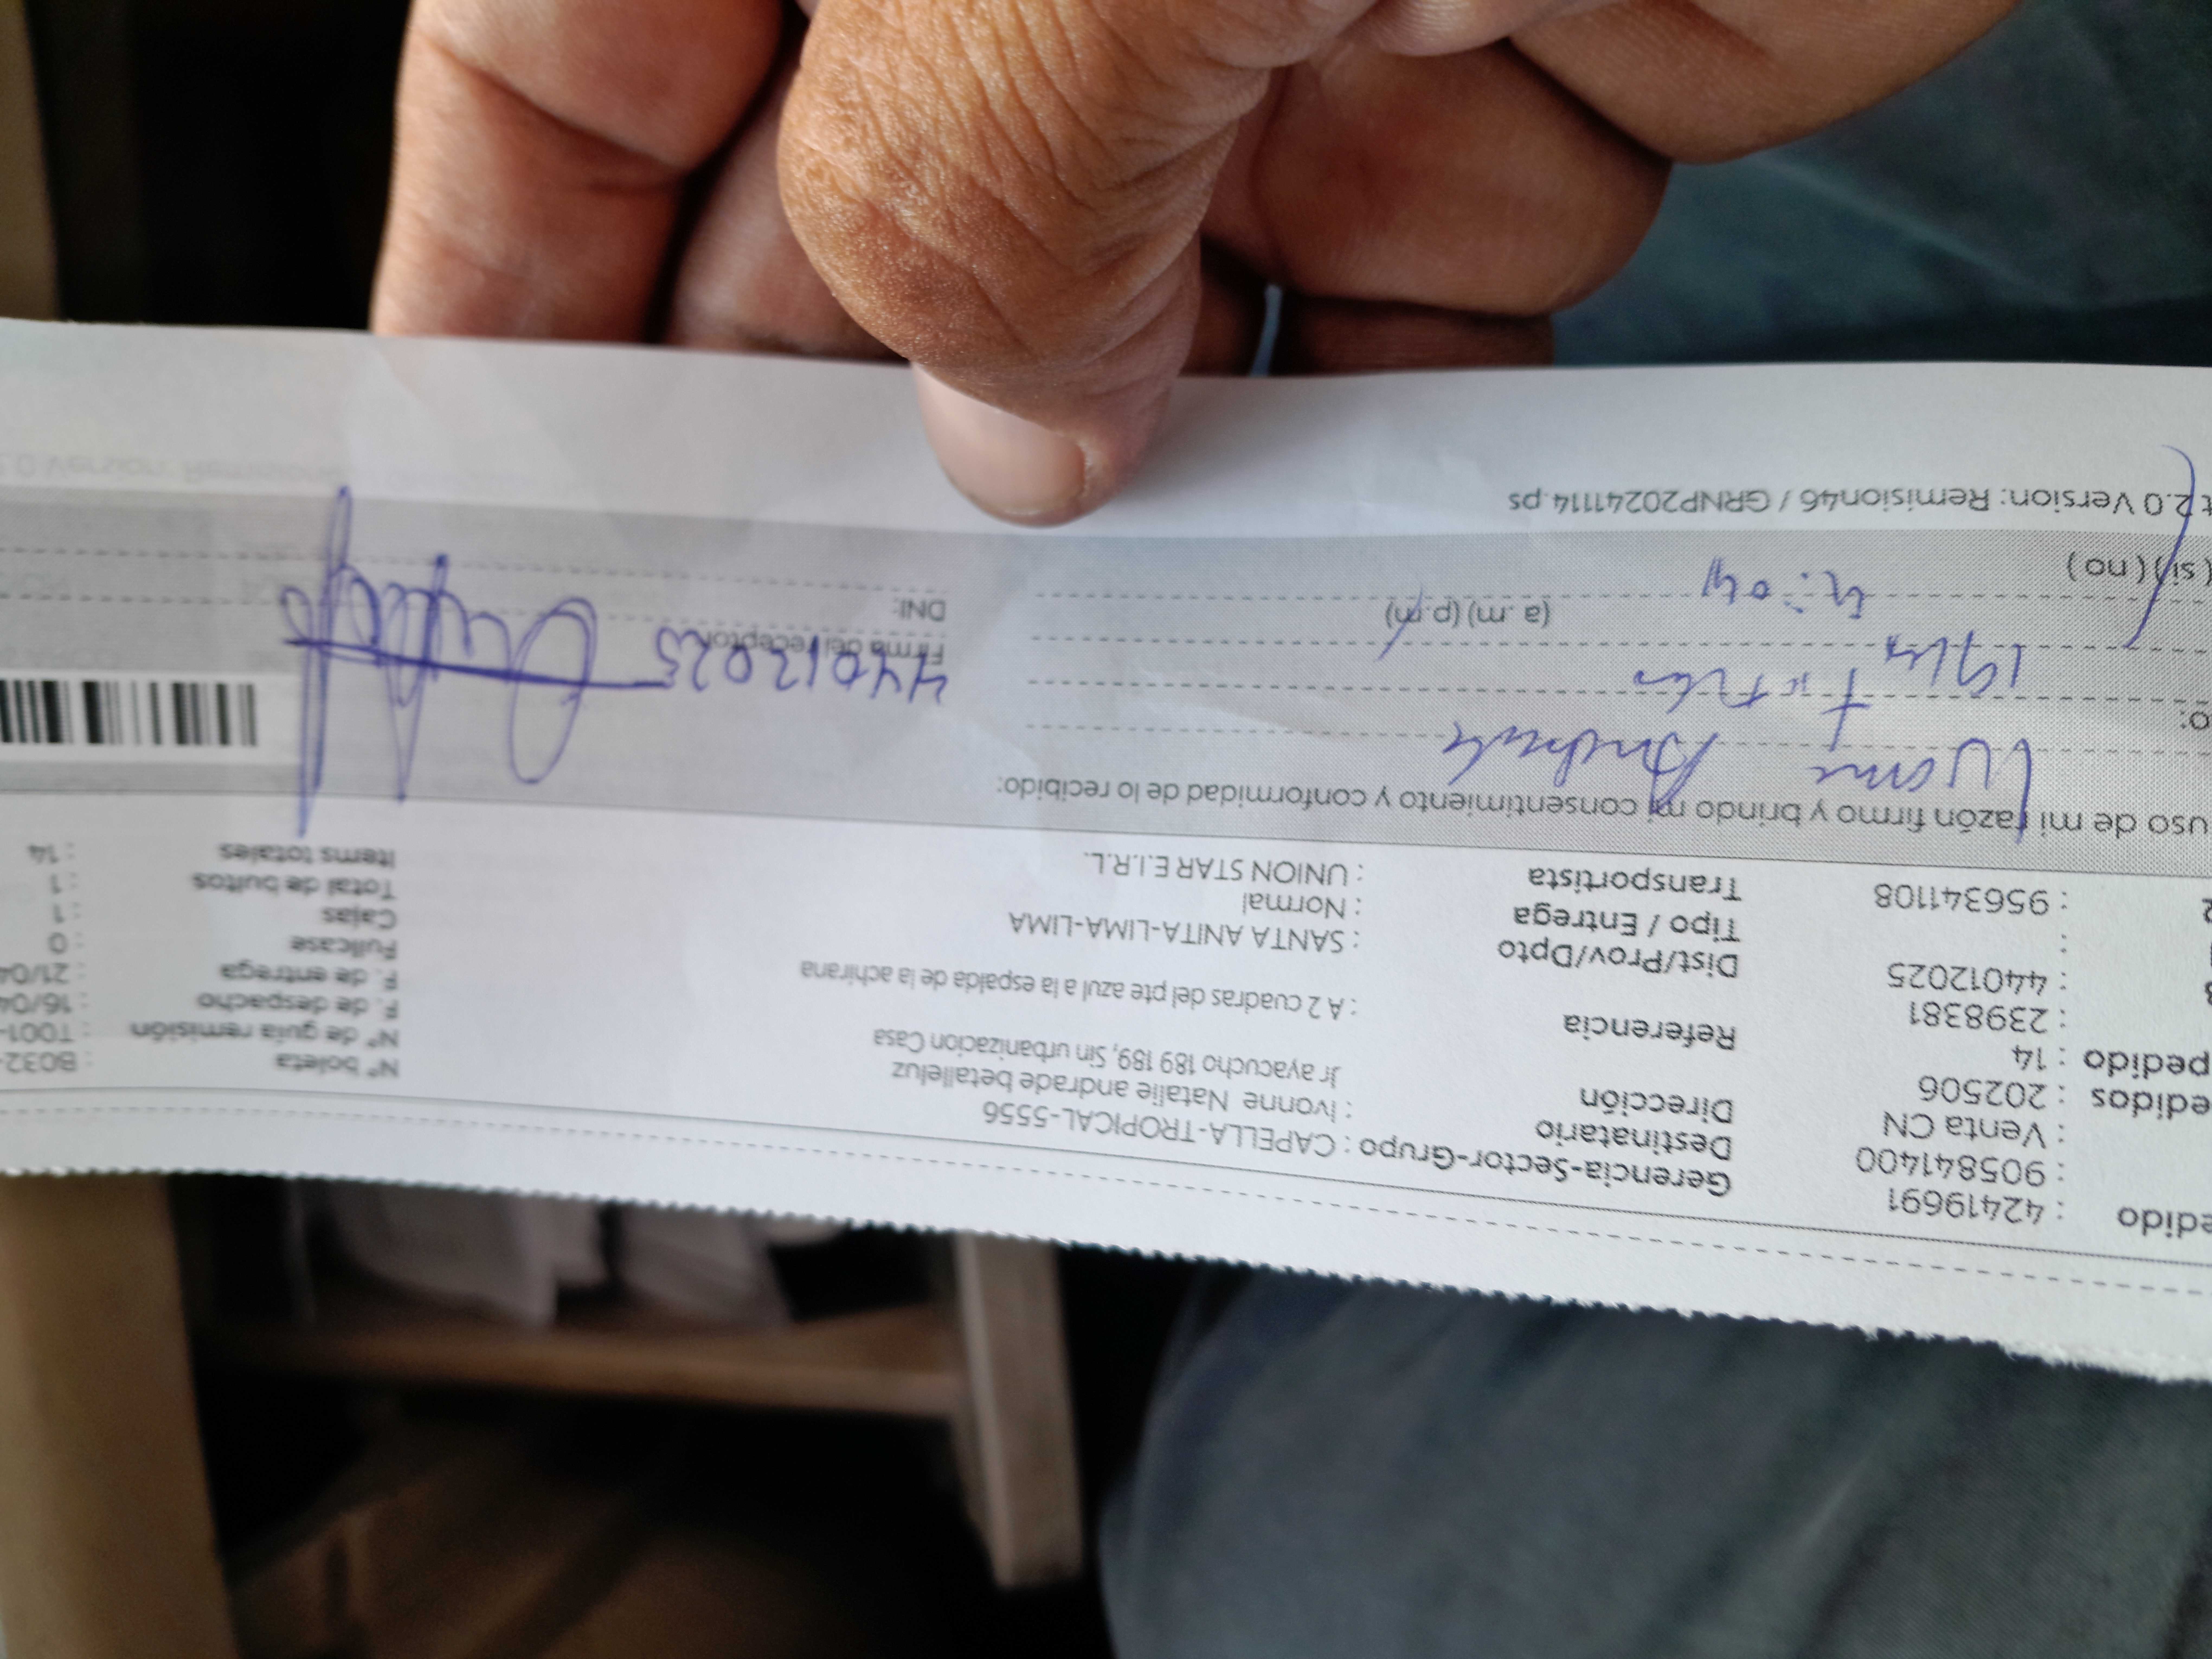 edido : 42419691
: 905841400
: Venta CN
edidos : 202506
pedido : 14
: 2398381
: 44012025
:
: 956341108
Gerencia-Sector-Grupo : CAPELLA-TROPICAL-5556
Destinatario : Ivonne Natalie andrade betalleluz
Dirección Jr ayacucho 189 189, Sin urbanizacion Casa
Referencia : A 2 cuadras del pte azul a la espalda de la achirana
Dist/Prov/Dpto : SANTA ANITA-LIMA-LIMA
Tipo / Entrega : Normal
Transportista : UNION STAR E.I.R.L.
N° boleta : B032-
N° de guía remisión : T001-
F. de despacho : 16/04
F. de entrega : 21/04
Fullcase : 0
Cajas : 1
Total de bultos : 1
Items totales : 14
uso de mi razón firmo y brindo mi consentimiento y conformidad de lo recibido:
Andrade
o:
(a .m) (p.m)
(si) (no)
44012025
Firma del receptor
DNI:
t 2.0 Version: Remision46 / GRNP20241114.ps